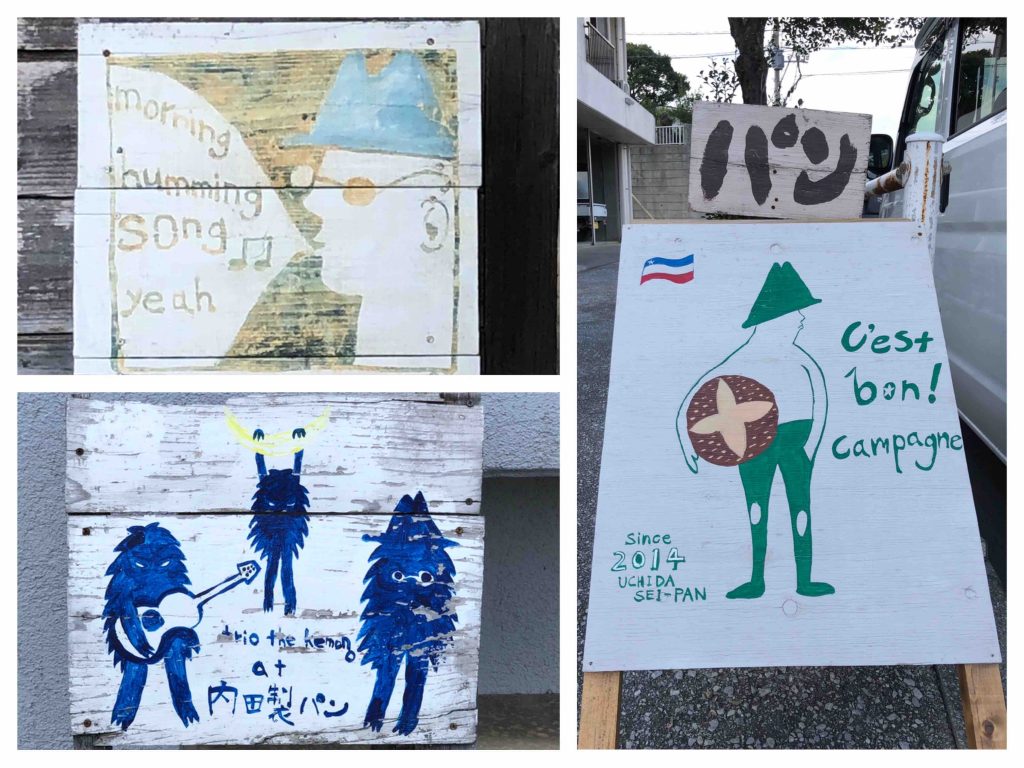 morning
humming
song
yeah
trio the kemono
at
内田製パン
パン
C'est
bon!
Campagne
Since
2014
UCHIDA
SEI-PAN